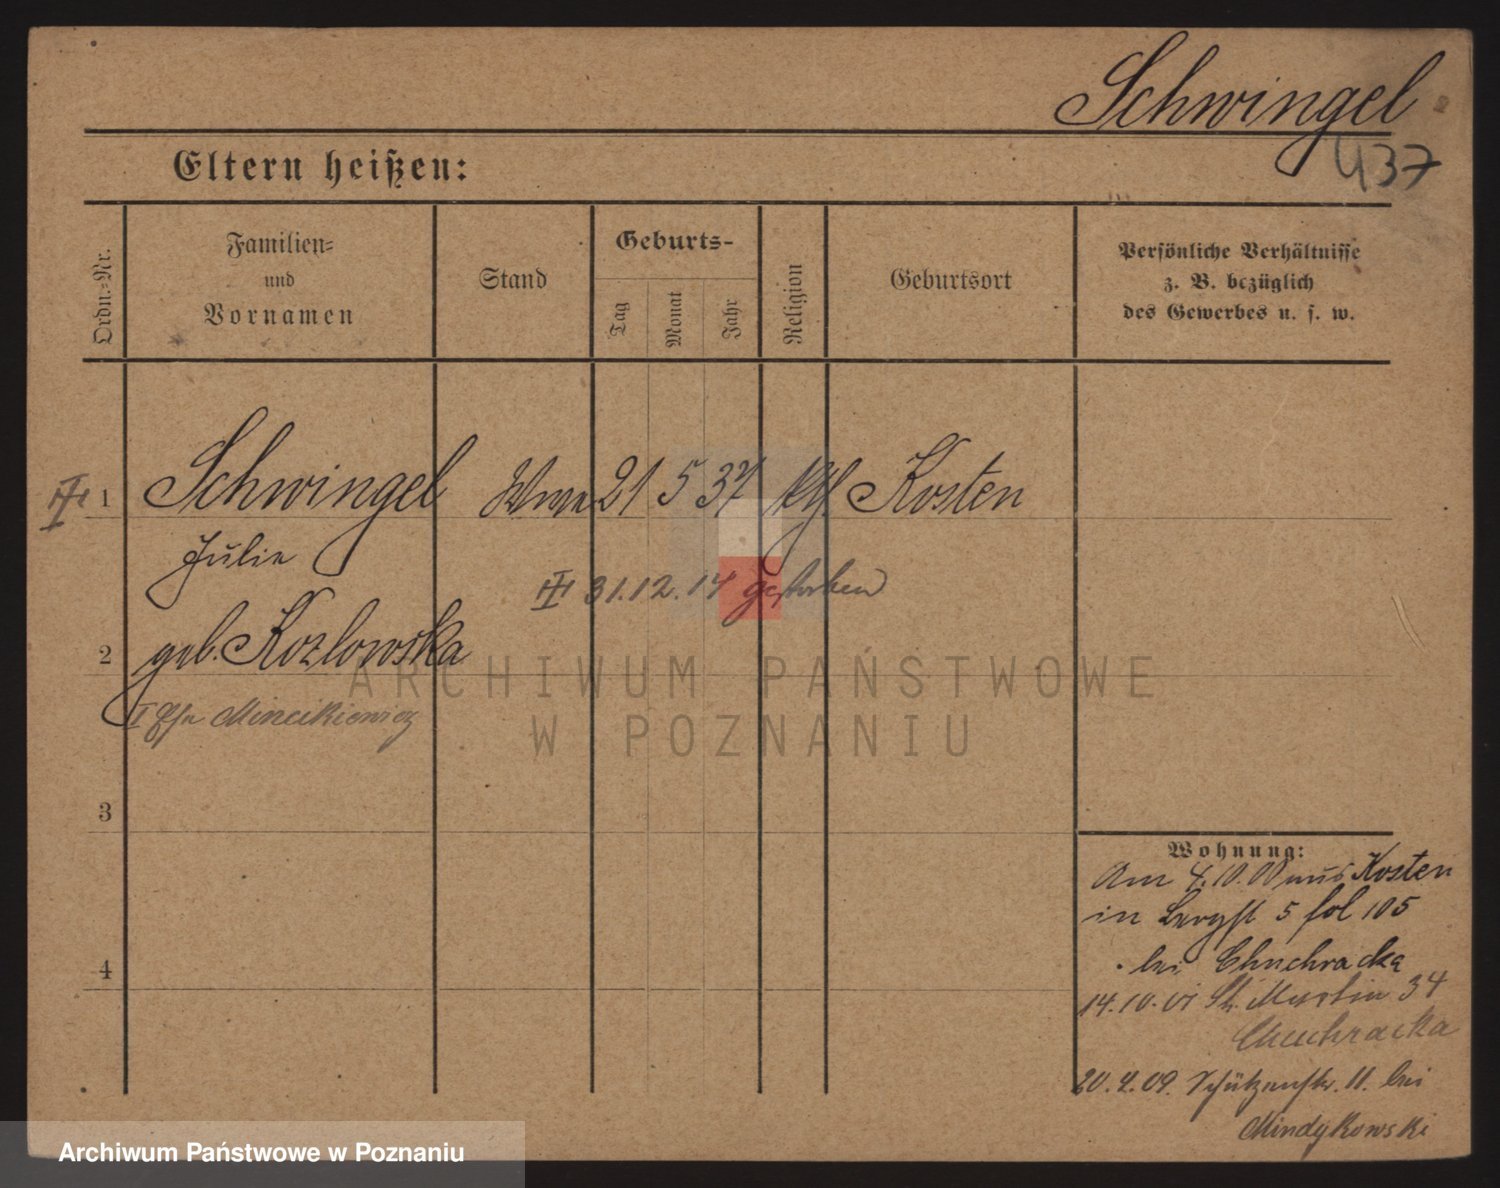 Schwingel
437
Eltern heißen:
Ordn.-Nr.
Familien-
und
Vornamen
Stand
Geburts-
Tag
Monat
Jahr
Religion
Geburtsort
Persönliche Verhältnisse
z. B. bezüglich
des Gewerbes u. s. w.
1 Schwingel Wwe 21 5 37 kth Kosten
Julie
31.12.14 gestorben
2 geb. Kozlowska
ARCHIWUM PAŃSTWOWE
W POZNANIU
3
4
Wohnung:
Am 4.10.00 aus Kosten
in Bergst 5 fol 105
bei Chuchracka
14.10.01 St. Martin 34
Chuchracka
20.4.09. Schützenstr. 11. bei
Mindykowski
Archiwum Państwowe w Poznaniu